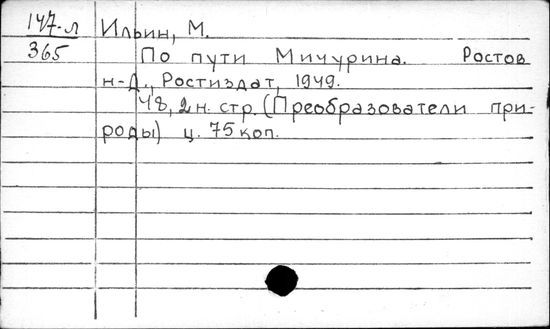 147-л Ильин, М.
365 По пути Мичурина. Ростов
н-Д., Ростиздат, 1949.
48, 2 н. стр. (Преобразователи при-
роды) ц. 75 коп.